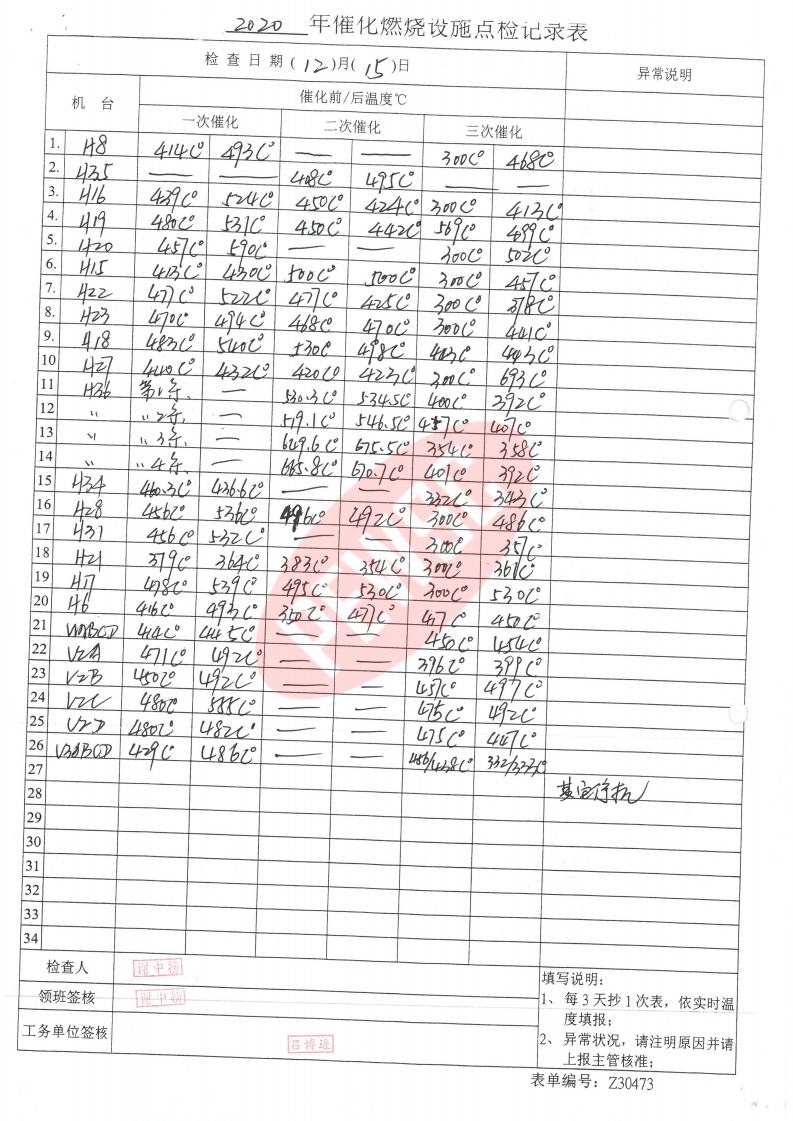 2020 年催化燃烧设施点检记录表
检查日期(12)月(15)日
异常说明
机 台
催化前/后温度℃
一次催化 二次催化 三次催化
1. H8 414C° 493C° — — 300C° 468C°
2. H35 — — 408C° 495C° — —
3. H16 439C° 524C° 450C° 424C° 300C° 413C°
4. H19 480C° 531C° 450C° 442C° 569C° 499C°
5. H20 457C° 590C° — — 300C° 502C°
6. H15 413C° 430C° 500C° 500C° 300C° 457C°
7. H22 477C° 522C° 477C° 425C° 300C° 378C°
8. H23 470C° 494C° 468C° 470C° 300C° 441C°
9. H18 483C° 540C° 530C° 498C° 443C° 443C°
10 H27 440C° 432C° 420C° 423C° 300C° 693C°
11 H36 第1 — 530.3C° 534.5C° 400C° 392C°
12 〃 〃2 — 519.1C° 546.5C° 457C° 407C°
13 〃 〃3 — 649.6C° 675.5C° 354C° 358C°
14 〃 〃4 — 665.8C° 670.7C° 401C° 392C°
15 H34 460.3C° 436.6C° — — 332C° 343C°
16 H28 456C° 536C° 496C° 492C° 300C° 486C°
17 H31 456C° 532C° — — 300C° 357C°
18 H21 379C° 364C° 383C° 354C° 300C° 361C°
19 H17 478C° 539C° 495C° 530C° 300C° 530C°
20 H6 416C° 493C° 350C° 471C° 477C° 450C°
21 414C° 445C° — — 450C° 454C°
22 V2A 471C° 492C° — — 396C° 399C°
23 V2B 450C° 492C° — — 457C° 497C°
24 V2C 480C° 588C° — — 475C° 492C°
25 V2D 480C° 482C° — — 475C° 447C°
26 429C° 486C° — — 486/428C° 332/333C°
27
28
29
30
31
32
33
34
检查人
领班签核
工务单位签核
填写说明：
1、每3天抄1次表，依实时温
度填报；
2、异常状况，请注明原因并请
上报主管核准；
表单编号：Z30473